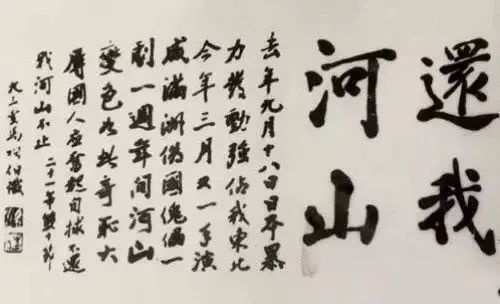 還我
河山
去年九月十八日日本暴
力發動強佔我東北
今年三月又一手演
成滿洲偽國傀儡一
劇一週年间河山
變色如此奇恥大
辱國人應奮起自救不還
我河山不止 二十一年雙十節
九三叟馬相伯識